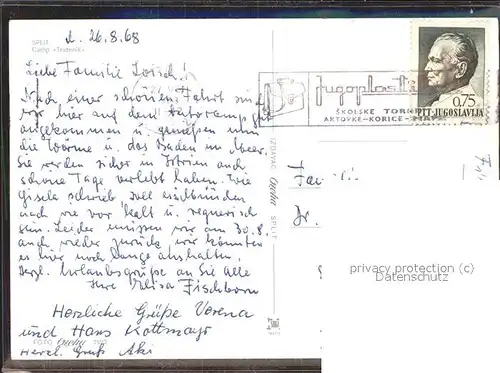 d. 26.8.68
SPLIT
Camp »Trstenik«
Liebe Familie !
Nach einer schönen Fahrt sind
wir hier auf dem Autocamp gut
angekommen u. genießen nun
die Wärme u. das Baden im Meer.
Sie werden sicher in Istrien auch
schöne Tage verlebt haben. Wie
Gisela schrieb, soll es
nach wie vor kalt u. regnerisch
sein. Leider müssen wir am 30.8.
auch wieder zurück, wir könnten
es hier noch lange aushalten.
Herzl. Urlaubsgrüße an Sie alle
Ihre Elisa Fischborn
Herzliche Grüße Verena
und Hans Kottmayr
Herzl. Gruß
FOTO
IZDAVAČ SPLIT
Jugoplasti
ŠKOLSKE TORBE
AKTOVKE-KORICE-MAPE
0.75
PTT-JUGOSLAVIJA
Fa
privacy protection (c)
Datenschutz